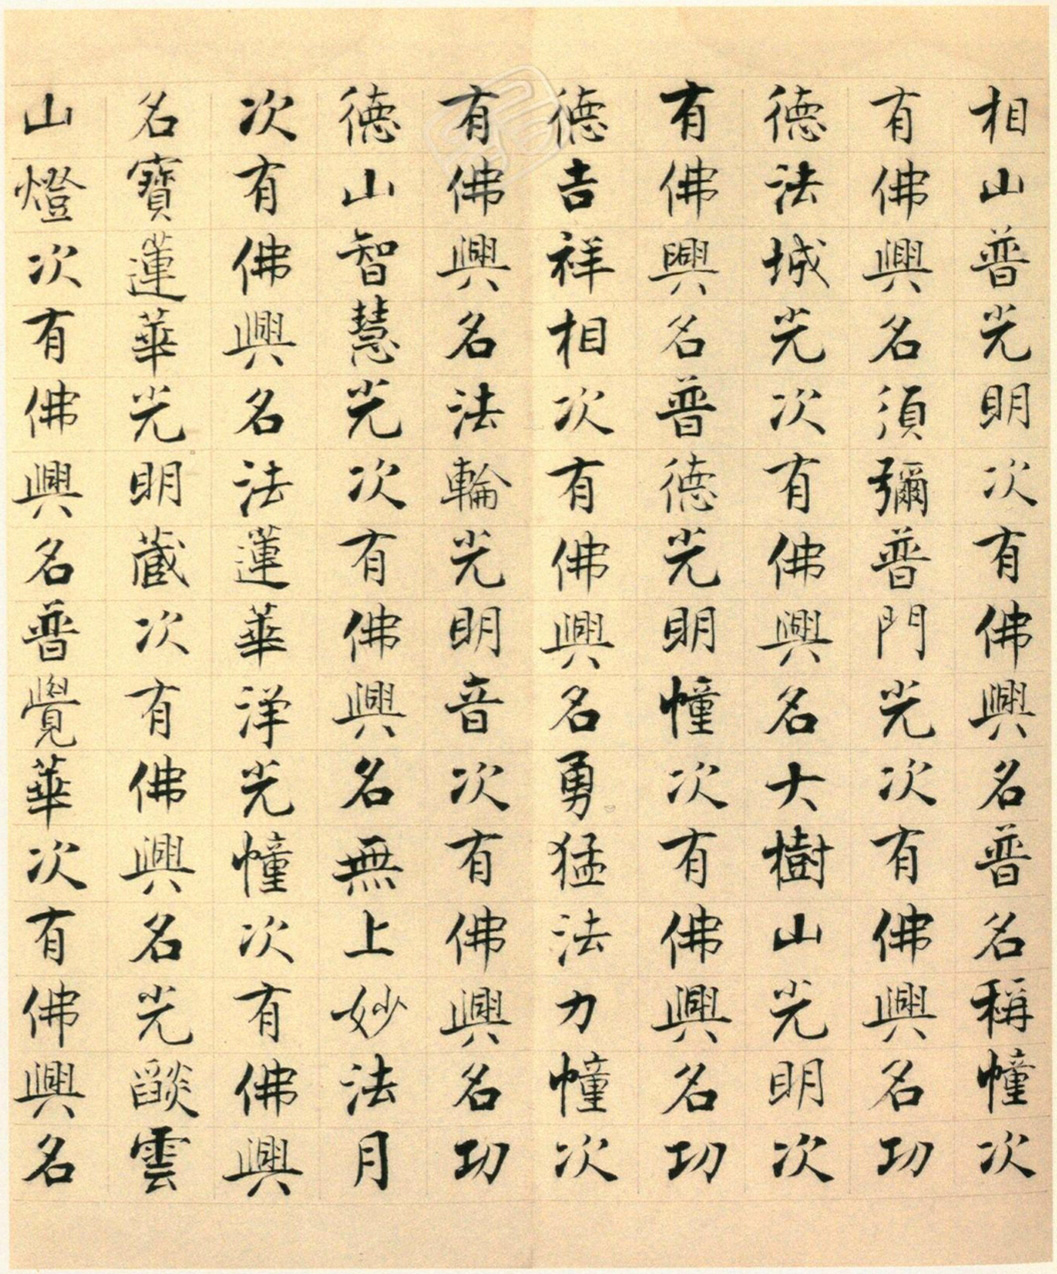 相山普光明次有佛興名普名稱幢次
有佛興名須彌普門光次有佛興名功
德法城光次有佛興名大樹山光明次
有佛興名普德光明幢次有佛興名功
德吉祥相次有佛興名勇猛法力幢次
有佛興名法輪光明音次有佛興名功
德山智慧光次有佛興名無上妙法月
次有佛興名法蓮華洋光幢次有佛興
名寶蓮華光明藏次有佛興名光燄雲
山燈次有佛興名普覺華次有佛興名